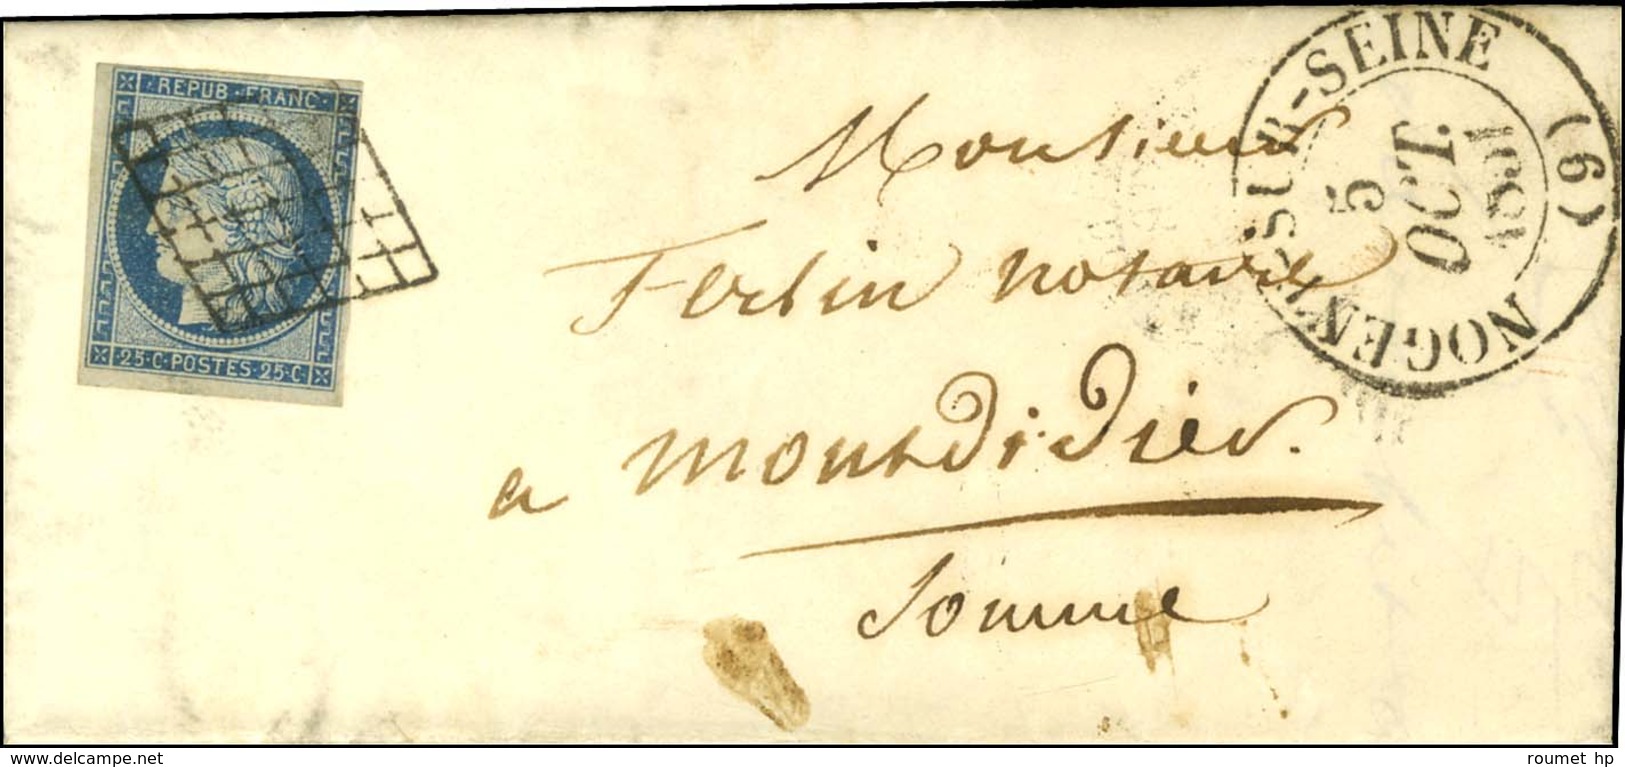 REPUB·FRANC
25·C·POSTES·25·C
NOGENT-SUR-SEINE (9)
5
OCT.
1851
Monsieur
Ferlin notaire
a montdidier.
Somme
www.delcampe.net
roumet hp